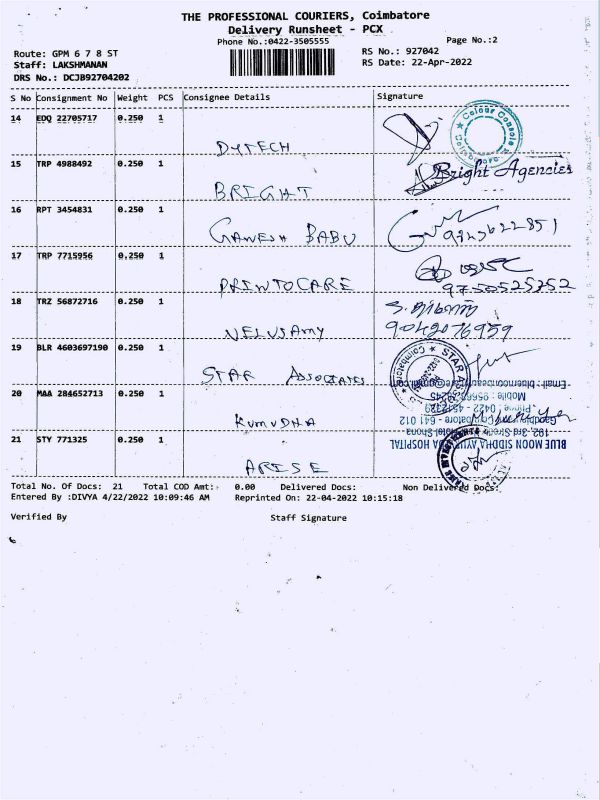 THE PROFESSIONAL COURIERS, Coimbatore
Delivery Runsheet - PCX
Phone No.:0422-3505555
Page No.:2
Route: GPM 6 7 8 ST
RS No.: 927042
Staff: LAKSHMANAN
RS Date: 22-Apr-2022
DRS No.: DCJB92704202
S No Consignment No Weight PCS Consignee Details Signature
14 EDQ 22705717 0.250 1
DYTECH
Colour Console
Coimbatore
15 TRP 4988492 0.250 1
Bright Agencies
BRIGHT
16 RPT 3454831 0.250 1
GANESH BABU
17 TRP 7715956 0.250 1
PRINTOCARE
9750525252
18 TRZ 56872716 0.250 1
9042076959
VELUSAMY
19 BLR 4603697190 0.250 1
STAR ASSOCIATES
20 MAA 284652713 0.250 1
KUMUDHA
21 STY 771325 0.250 1
BLUE MOON SIDDHA AYURVEDA HOSPITAL
ARISE
Total No. Of Docs: 21 Total COD Amt: 0.00 Delivered Docs: Non Delivered Docs:
Entered By :DIVYA 4/22/2022 10:09:46 AM Reprinted On: 22-04-2022 10:15:18
Verified By Staff Signature